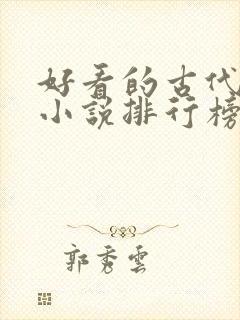 好看的古代
小说排行榜
郭秀雲